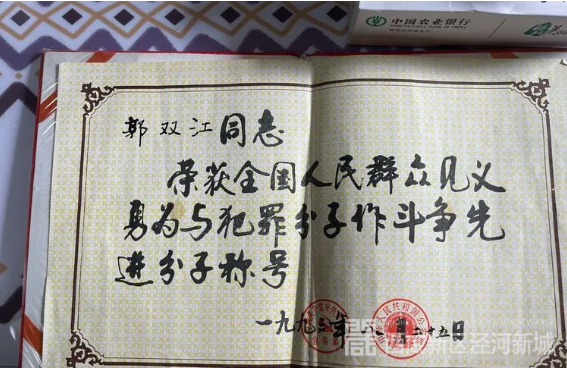 中国农业银行
郭双江同志
荣获全国人民群众见义
勇为与犯罪分子作斗争先
进分子称号
一九九三年
二十五日
泾河新城